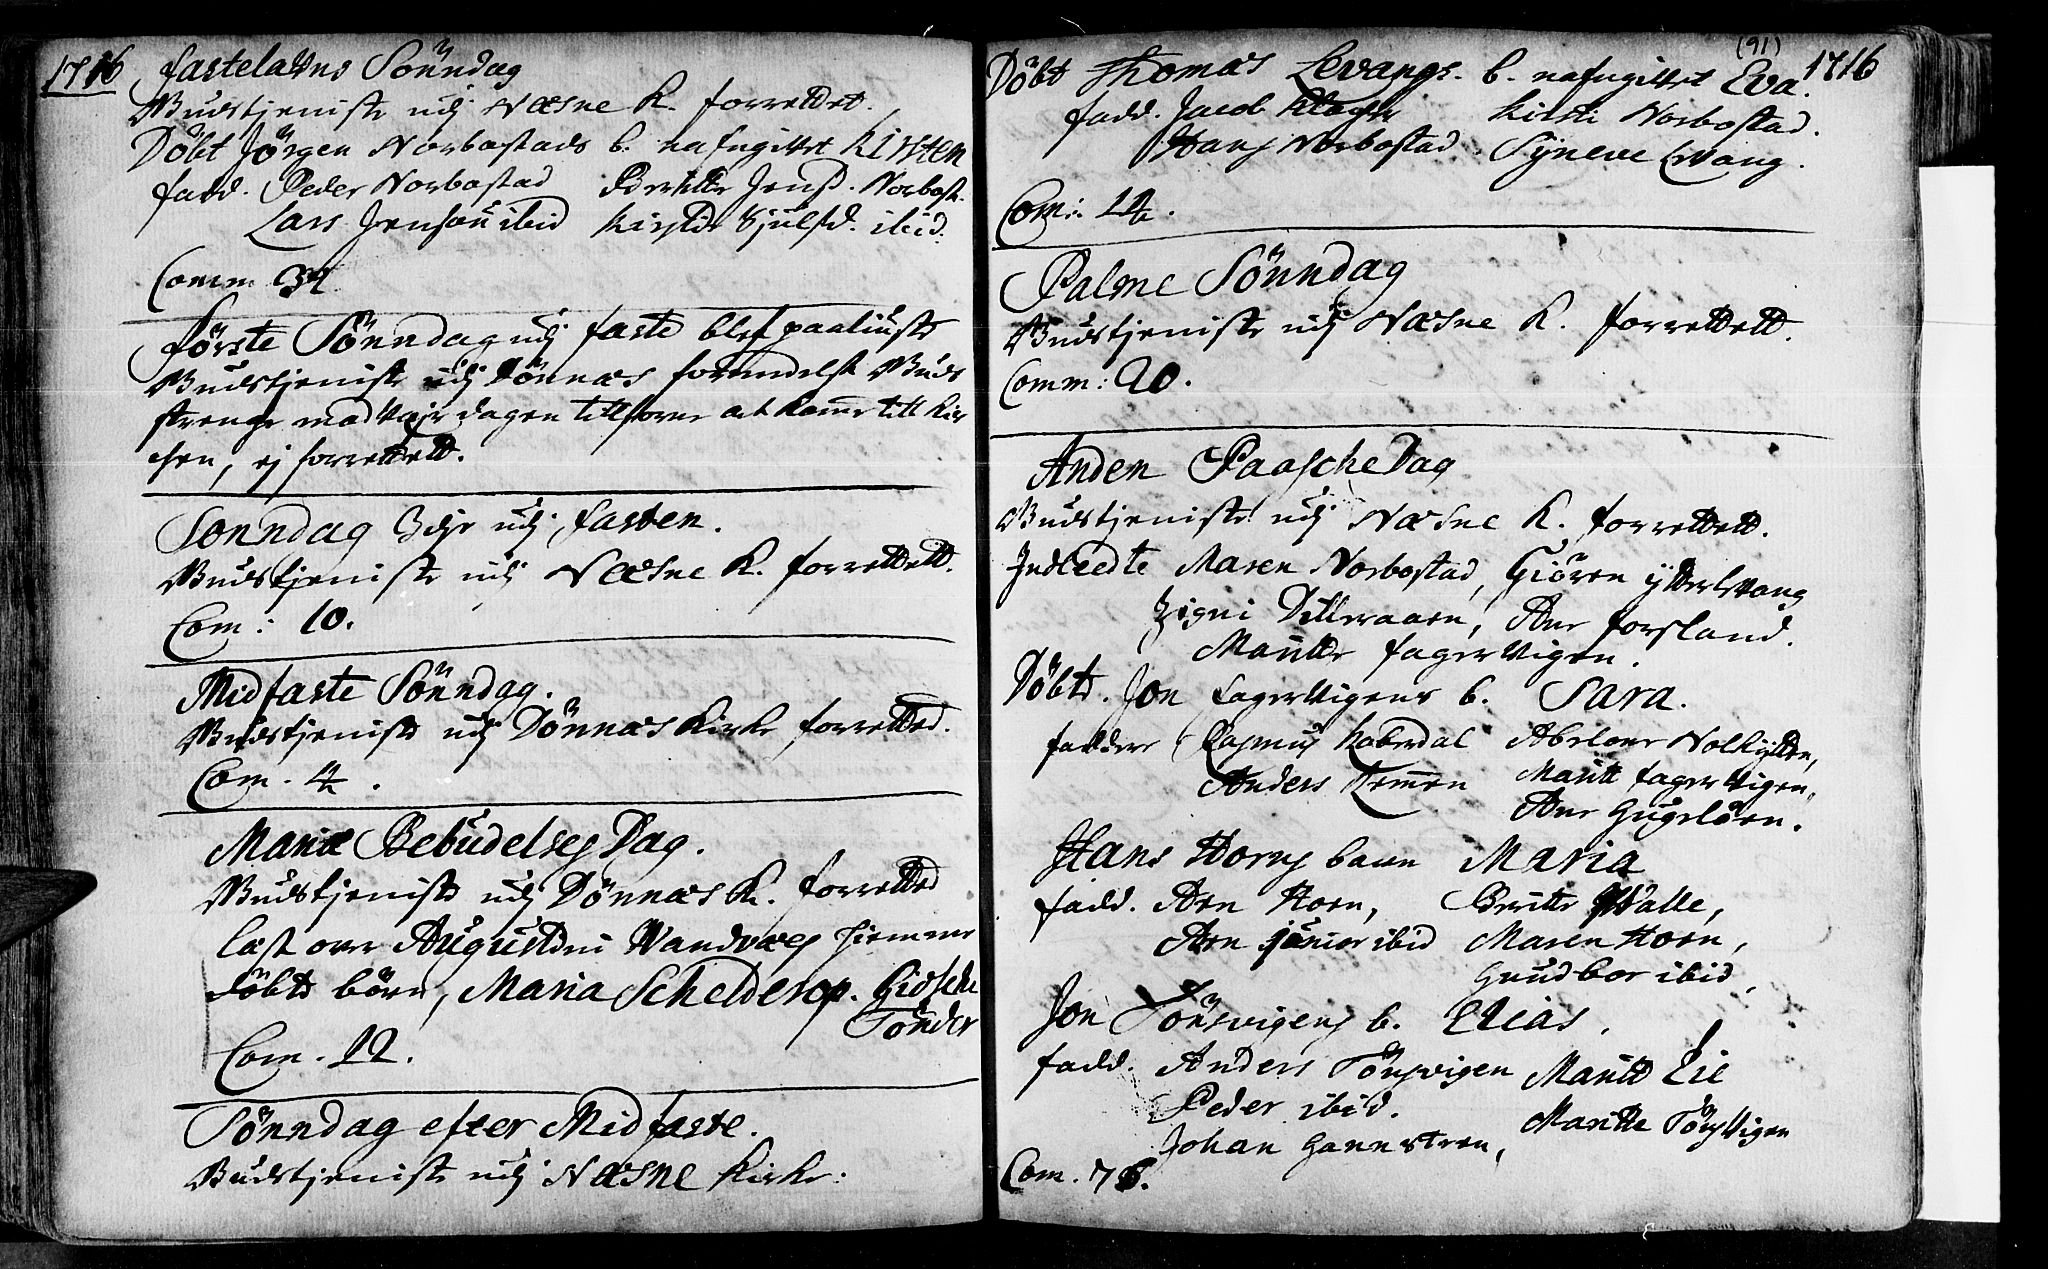 1716 Fastelavns Sönndag
Gudstieniste udj Næsne K. forrettet.
Döbt Jörgen Norbostads b. nafngivet Kirsten
fadd. Peder Norbostad Berette Jensd. Norbost.
Lars Jensön ibid Kirsten ibid.
Comm 34
Förste Sönndag udj faste blef paaliuste
Gudstieniste udj Dönnæs formedelst Guds
strenge mod Veyr dagen tilforne at komme till Kir
chen, ej forrettett.
Sonndag 3die udj fasten.
Gudstieniste udj Næsne K. forrettett.
Com: 10.
Midfaste Sönndag.
Gudstieniste udj Dönnæs Kirke forretted.
Com. 4.
Mariæ Bebudelses Dag.
Gudstieniste udj Dönnæs K. forretted
læst over Augustini Wandvæs hiemme
döbte börn, Maria Schelderop. Gidsche
Tönder
Com. 12.
Sönndag efter Midfaste.
Gudstieniste udj Næsne Kirke.
(91)
Döbt Thomas Levangs. b. nafngivet Eva. 1716
fadd. Jacob Kirsti Norbostad.
Hans Norbostad. Syneve Levang.
Com: 14.
Palme Sönndag
Gudstieniste udj Næsne K. forrettett.
Comm: 20.
Anden Paasche Dag
Gudstieniste udj Næsne K. forrettett.
Indleedte Maren Norbostad, Giören ytterlevang
Zigni Dilleraaen, Ane Forsland.
Maritte Fagervigen.
Döbte. Jon Fagervigens b. Sara.
faddere Rasmus Haberdal Abelone
Anders Remmen Maritt Fagervigen,
Ane Hugelaaen.
Hans Horns barn Maria
fadd. Arn Horn, Berette Walle,
Arn junior ibid Maren Horn,
Gundbor ibid,
Jon Törsvigens b. Elias.
fadd. Anders Törsvigen Maritte Lie
Peder ibid. Maritte Törsvigen
Johan Hannestren,
Com. 76.